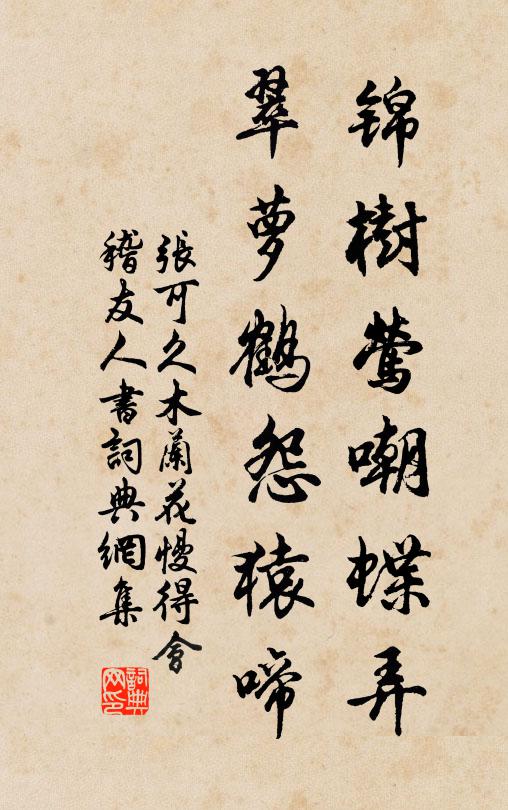 錦樹鶯嘲蝶弄
翠萝鶴怨猿啼
張可久木蘭花慢得會
稽友人書詞典網集
詞典
网印